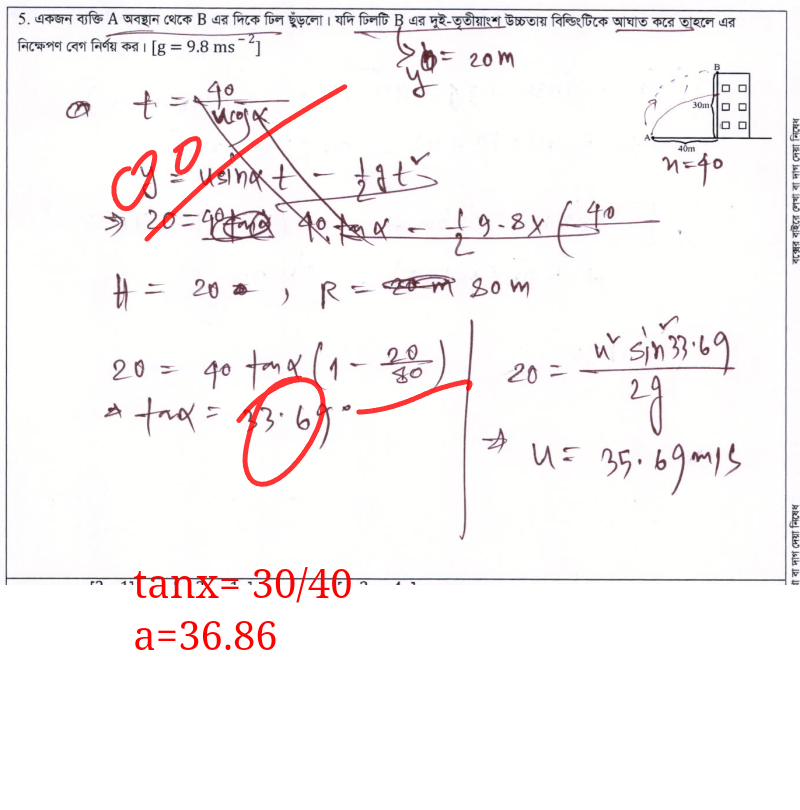 5. একজন ব্যক্তি A অবস্থান থেকে B এর দিকে ঢিল ছুঁড়লো। যদি ঢিলটি B এর দুই-তৃতীয়াংশ উচ্চতায় বিল্ডিংটিকে আঘাত করে তাহলে এর
নিক্ষেপণ বেগ নির্ণয় কর। [g = 9.8 ms⁻²]
y = 20m
B
30m
A
40m
x=40
t = 40/ucosα
y = usinα t - ½gt²
⇒ 20 = 40 tanα - ½ 9.8x (40
H = 20 , R = 80m
20 = 40 tanα (1 - 20/80)
⇒ tanα = 33.69°
20 = u² sin²33.69 / 2g
⇒ u = 35.69 m/s
tanx= 30/40
a=36.86
বক্সের বাইরে লেখা বা দাগ দেয়া নিষেধ
বা দাগ দেয়া নিষেধ